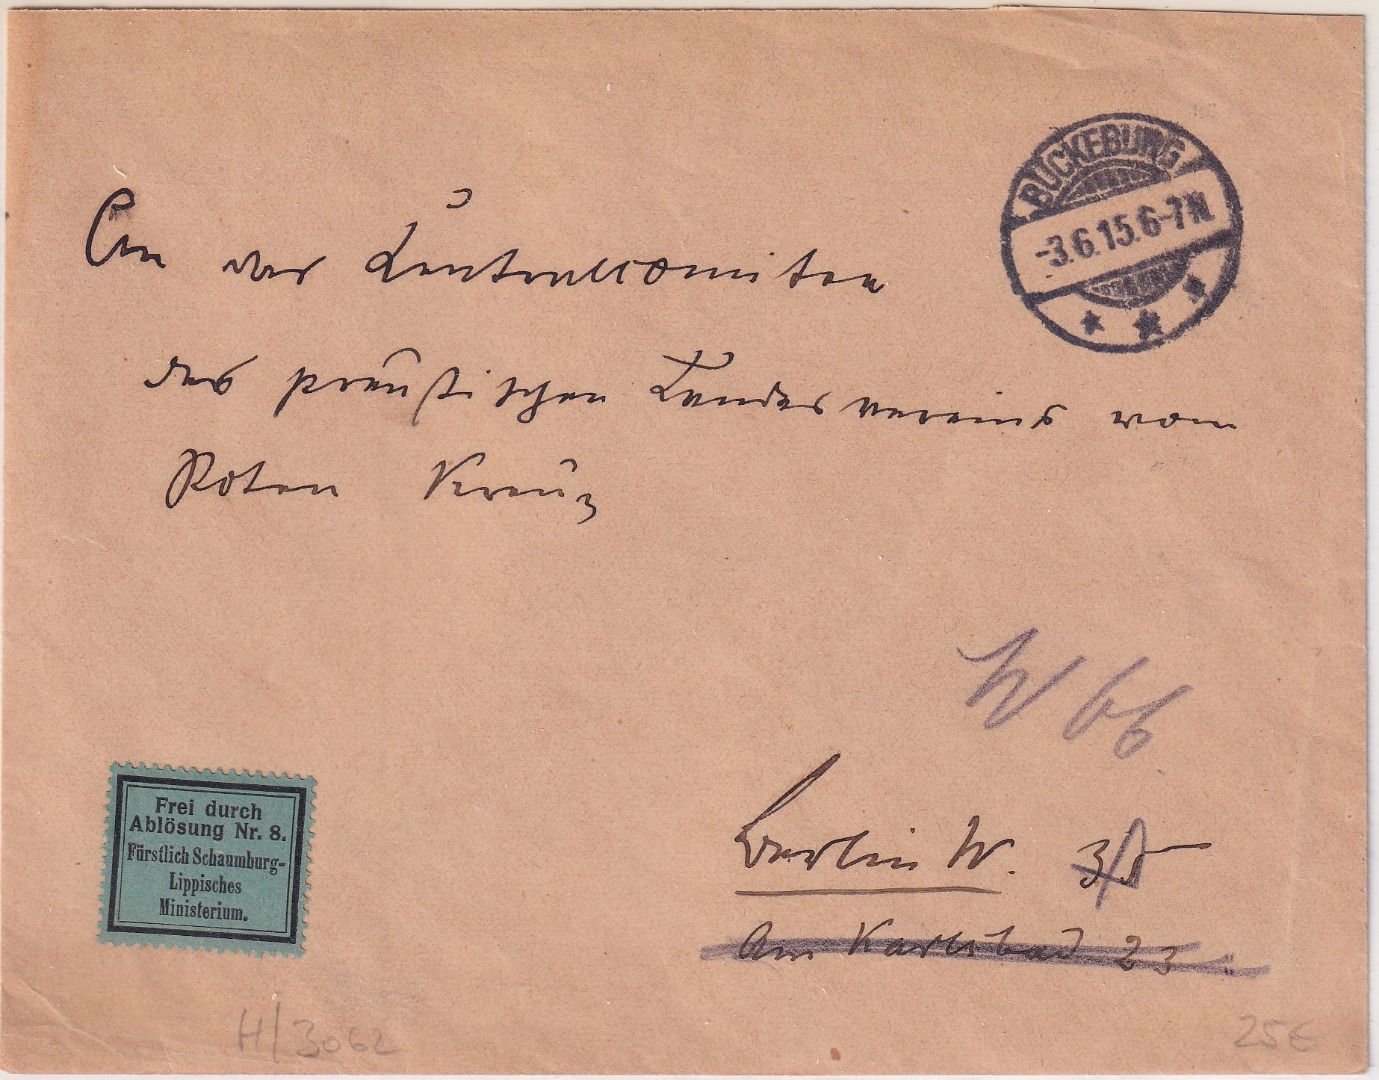 BÜCKEBURG
-3.6.15.6-7N.
An das Centralcomitee
des preußischen Landesvereins vom
Roten Kreuz
W 66
Berlin W. 35
Am Karlsbad 23
Frei durch
Ablösung Nr. 8.
Fürstlich Schaumburg-
Lippisches
Ministerium.
H/3062
25€